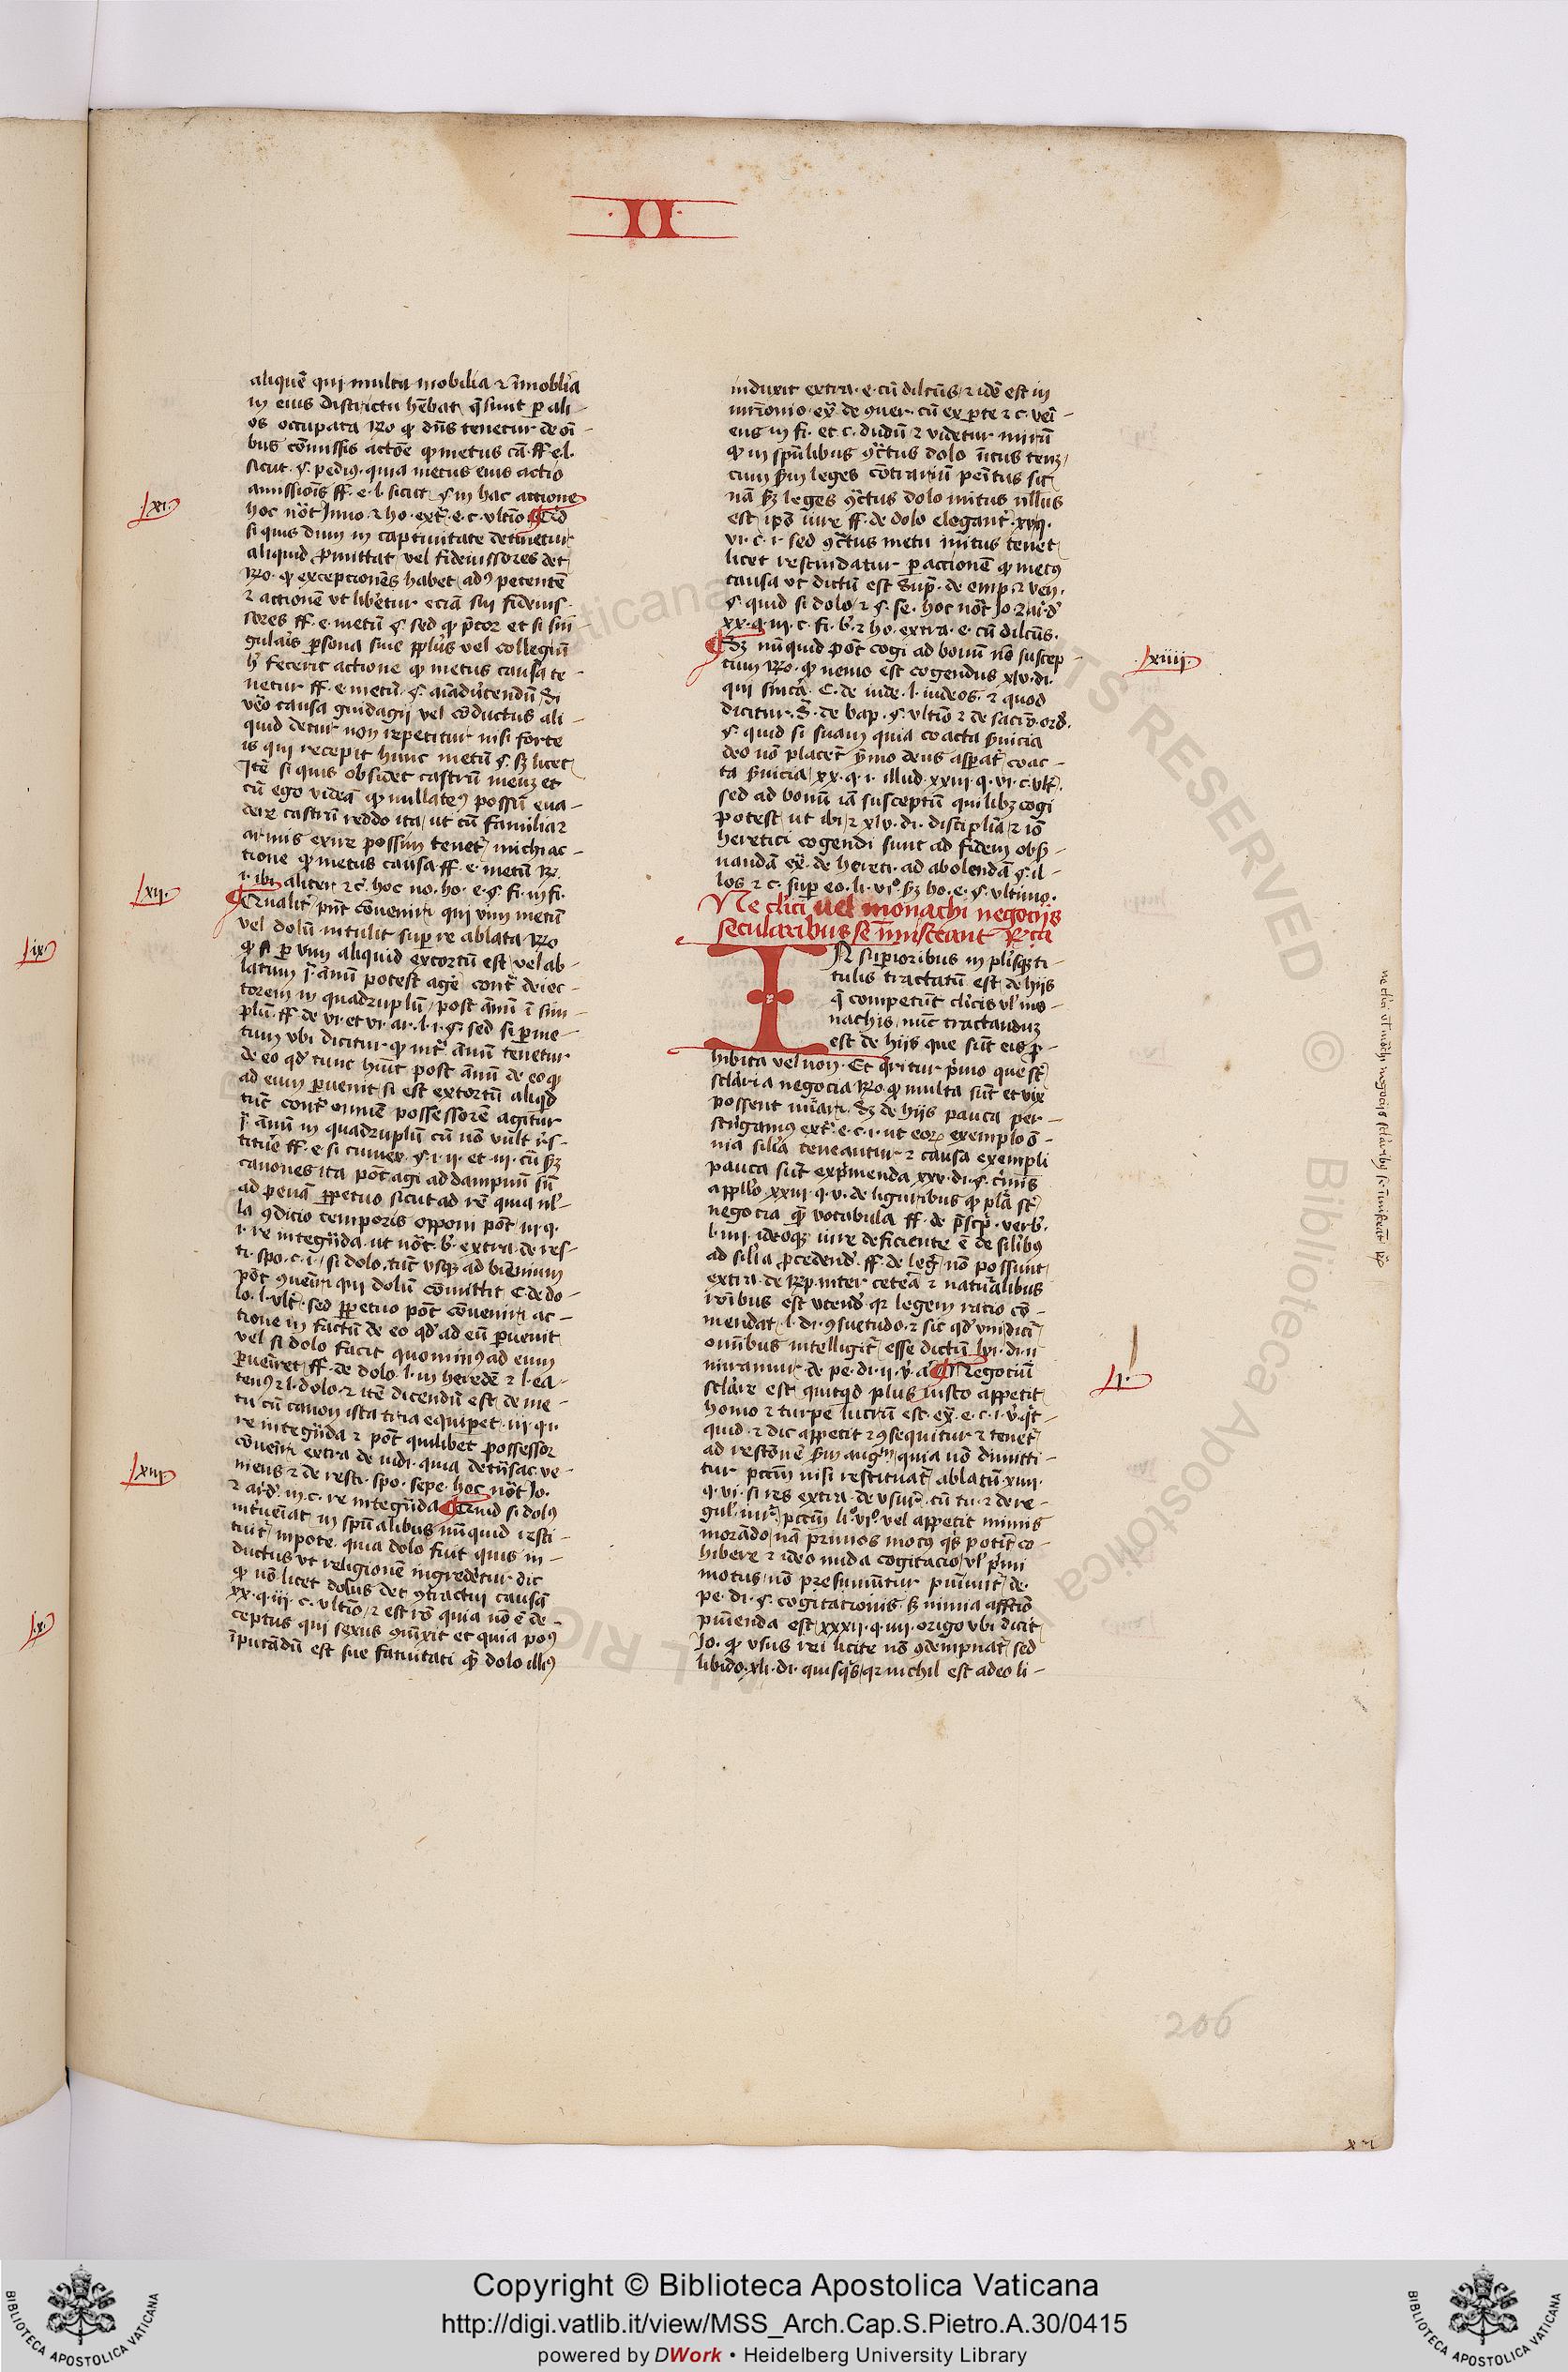 ·II·
aliquē qui multa mobilia ⁊ īmobl'ia
in eius districtu hēbat q̄ sunt p ali-
os occupata Rō ꝙ dn̄s tenetur de oī-
bus cōmissis actōe ꝙ metus cā ff e l
sicut § pedius quia metus eius actio
amissiōis ff e l sicut § in hac actione
hoc nōt Inno ⁊ ho ext̄ e c ultīo Quid
si quis dum in captiuitate detinetur
aliquid ꝓmittat vel fideiussores det
Rō ꝙ exceptionēs habet adꝰ petentē
⁊ actionē ut libēetur eciā sui fideius-
sores ff e metū § sed ꝙ p̄tor et si sin-
gularis persona siue ppl'us vel collegiū
h' fecerit actione ꝙ metus causa te-
netur ff e metū § aīaduertendū Si
vēo causa guidagii vel cōductus ali-
quid detur non repetitur nisi forte
is qui recepit hunc metū § s licet
Itē si quis obsidet castrū meuꝫ et
cū ego videā ꝙ nullatenꝰ possū eua-
dere castrū reddo ita ut cū familia ⁊
armis exire possim tenet' michi ac-
tione ꝙ metus causa ff e metū
i ibi aliter ⁊ c̄ hoc no ho e § fi in fi
Qualit' pn̄t cōueniri qui vim metū
vel dolū intulit super re ablata Rō
ꝙ si p vim aliquid extortū est vel ab-
latum ī annū potest agē cont̄ deiec-
torem in quadruplū post annū ī sim-
plū ff de vi et vi ar l i § sed si p me-
tum ubi dicitur ꝙ intᵃ annū tenetur
de eo qd' tunc hūit post annū de eo ꝙ
ad eum puenit si est extortū aliqd
tūc contᵃ omnē possessorē agitur
ī annū in quadruplū cū nō vult res-
tituē ff e si cum ex § i ii et iii cū s
canones ita pōt agi ad dampnū sū
ad penā ppetuo sicut ad rē quia nl'-
la ꝯdicio temporis opponi pōt iii q
i reintegrāda ut nōt b' extra de res-
ti spo c i si dolo tūc usqꝫ ad biennium
pōt ꝯuenīri qui dolū cōmittit C de do-
lo l ult̄ sed ppetuo pōt cōueniri ac-
tione in factū de eo qd' ad eū puenit
vel si dolo facit quominus ad eum
pueniret ff de dolo l in heredē ⁊ l ea-
tenꝰ ⁊ l dolo ⁊ itē dicendū est de me-
tu cū canon ista tria equipet iii q i
reintegrāda ⁊ pōt quilibet possessor
cōuenīri extra de iudi quia detīsac ve-
niens ⁊ de resti spo sepe hoc nōt Jo
⁊ ard' in c reintegrāda Quid si dolꝰ
intueniat in spūalibus nūquid resti-
tuit' inpote quia dolo fuit quis in-
ductus ut religionē ingrederetur dic
ꝙ nō licet dolus det ꝯtractui causā
xx q iii c ultīo ⁊ est rō quia nō ē de-
ceptus qui sexus ꝯuīxit et quia poꝰ
īputādū est sue fatuitati q̄ dolo illiꝰ
induxit extra e cū dilcūs ⁊ idē est in
mr̄ionio ex̄ de ꝯuer cū ex pte ⁊ c veī-
ens in fi et c dudū ⁊ videtur mirū
ꝙ in spūlibus ꝯtᵃctus dolo initus tenꝫ
cum sm leges cōtrariū penitus sit
nā s leges ꝯtᵃctus dolo initus nullus
est ipō iure ff de dolo elegant̄ xvq
vi c i sed ꝯtᵃctus metu initus tenet
licet rescindatur p actionē ꝙ metꝰ
causa ut dictū est supᵃ de emp ⁊ ven
§ quid si dolo ⁊ § se hoc nōt Jo ⁊ ar d'
xx q iii c fi b' ⁊ ho extra e cū dilcūs
Sꝫ nūquid pōt cogi ad bonū nō suscep-
tum Rō ꝙ nemo est cogendus xlv di
qui sincera C de iude l iudeos ⁊ quod
dicitur S de bap § ultīo ⁊ de sacᵃ ord
§ quid si suam quia coacta suicia
deo nō placet ymo deus aspat̄ coac-
ta suicia xx q i illud xxiii q vi c ult
sed ad bonū iā susceptū quilibꝫ cogi
potest ut ibi ⁊ xlv di disciplīa ⁊ iō
heretici cogendi sunt ad fidem obs-
uandā ex̄ de hereti ad abolendā § il-
los ⁊ c sup eo li vi° s ho e § ultimo
Ne clīci uel monachi negociis
secularibus se īmisceant Rᶜᵃ
IN supioribus in plisqꝫ ti-
tulis tractatū est de hijs
q̄ competūt cl'icis ul' mo-
nachis nūc tractanduꝫ
est de hijs que sūt eis ꝓ-
hibita vel non Et q̄ritur p̄mo que st̄
sc̄l'aria negocia Rō ꝙ multa sūt et vix
possent nūari Sꝫ de hijs pauca per-
stringamꝰ ext̄ e c i ut eoꝝ exemplo ō-
nia sil'ia teneantur ⁊ causa exempli
pauca sūt exprimenda xxv di § c̄mīs
appl'lo xxiii q v de liguribus ꝙ pl'a st̄
negocia q̄ vocabula ff de p̄scp̄ verb'
l iiii ideoqꝫ iure deficiente ē de sil'ibꝰ
ad sil'ia ꝓcedend' ff de leḡ nō possunt
extra de Rsp inter cetera ⁊ naturalibus
rōnibus est utend' qr legem ratio cō-
mendat l di ꝯsuetudo ⁊ sic qd' uni dicit'
omnibus intelligit' esse dictū lvi di ii
miramur de pe di ii v' a Negociū
scl'are est quitqd plus iusto appetit
homo ⁊ turpe lucrū est ex̄ e c i v' q̄t
quid ⁊ dic appetit ⁊ ꝯsequitur ⁊ tenet'
ad restōnē sm auḡ quia nō dimitti-
tur pctm̄ nisi restituat' ablatū xiiii
q vi si res extra de usur̄ cū tu ⁊ de re-
gul' iur̄ pctm̄ li° vi° vel appetit nimis
morādo nā primos motꝰ q̄s potīt co-
hibere ⁊ ideo nuda cogitacio ul' p̄mi
motus nō presumūtur puniūt' de
pe di § cogitationis s nimia affctīo
punienda est xxxii q iiii origo ubi dicit
Jo ꝙ usus rei licite nō ꝯdempnat' sed
libido xli di quisqs qr nichil est adeo li-
xi
xii
xiii
xiiii
i
ix
x
ne cl'ici ul' mōchi negocijs scl'aribꝰ se īmisceāt Rᶜᵃ
206
Copyright © Biblioteca Apostolica Vaticana
http://digi.vatlib.it/view/MSS_Arch.Cap.S.Pietro.A.30/0415
powered by DWork • Heidelberg University Library
BIBLIOTECA APOSTOLICA VATICANA
BIBLIOTECA APOSTOLICA VATICANA